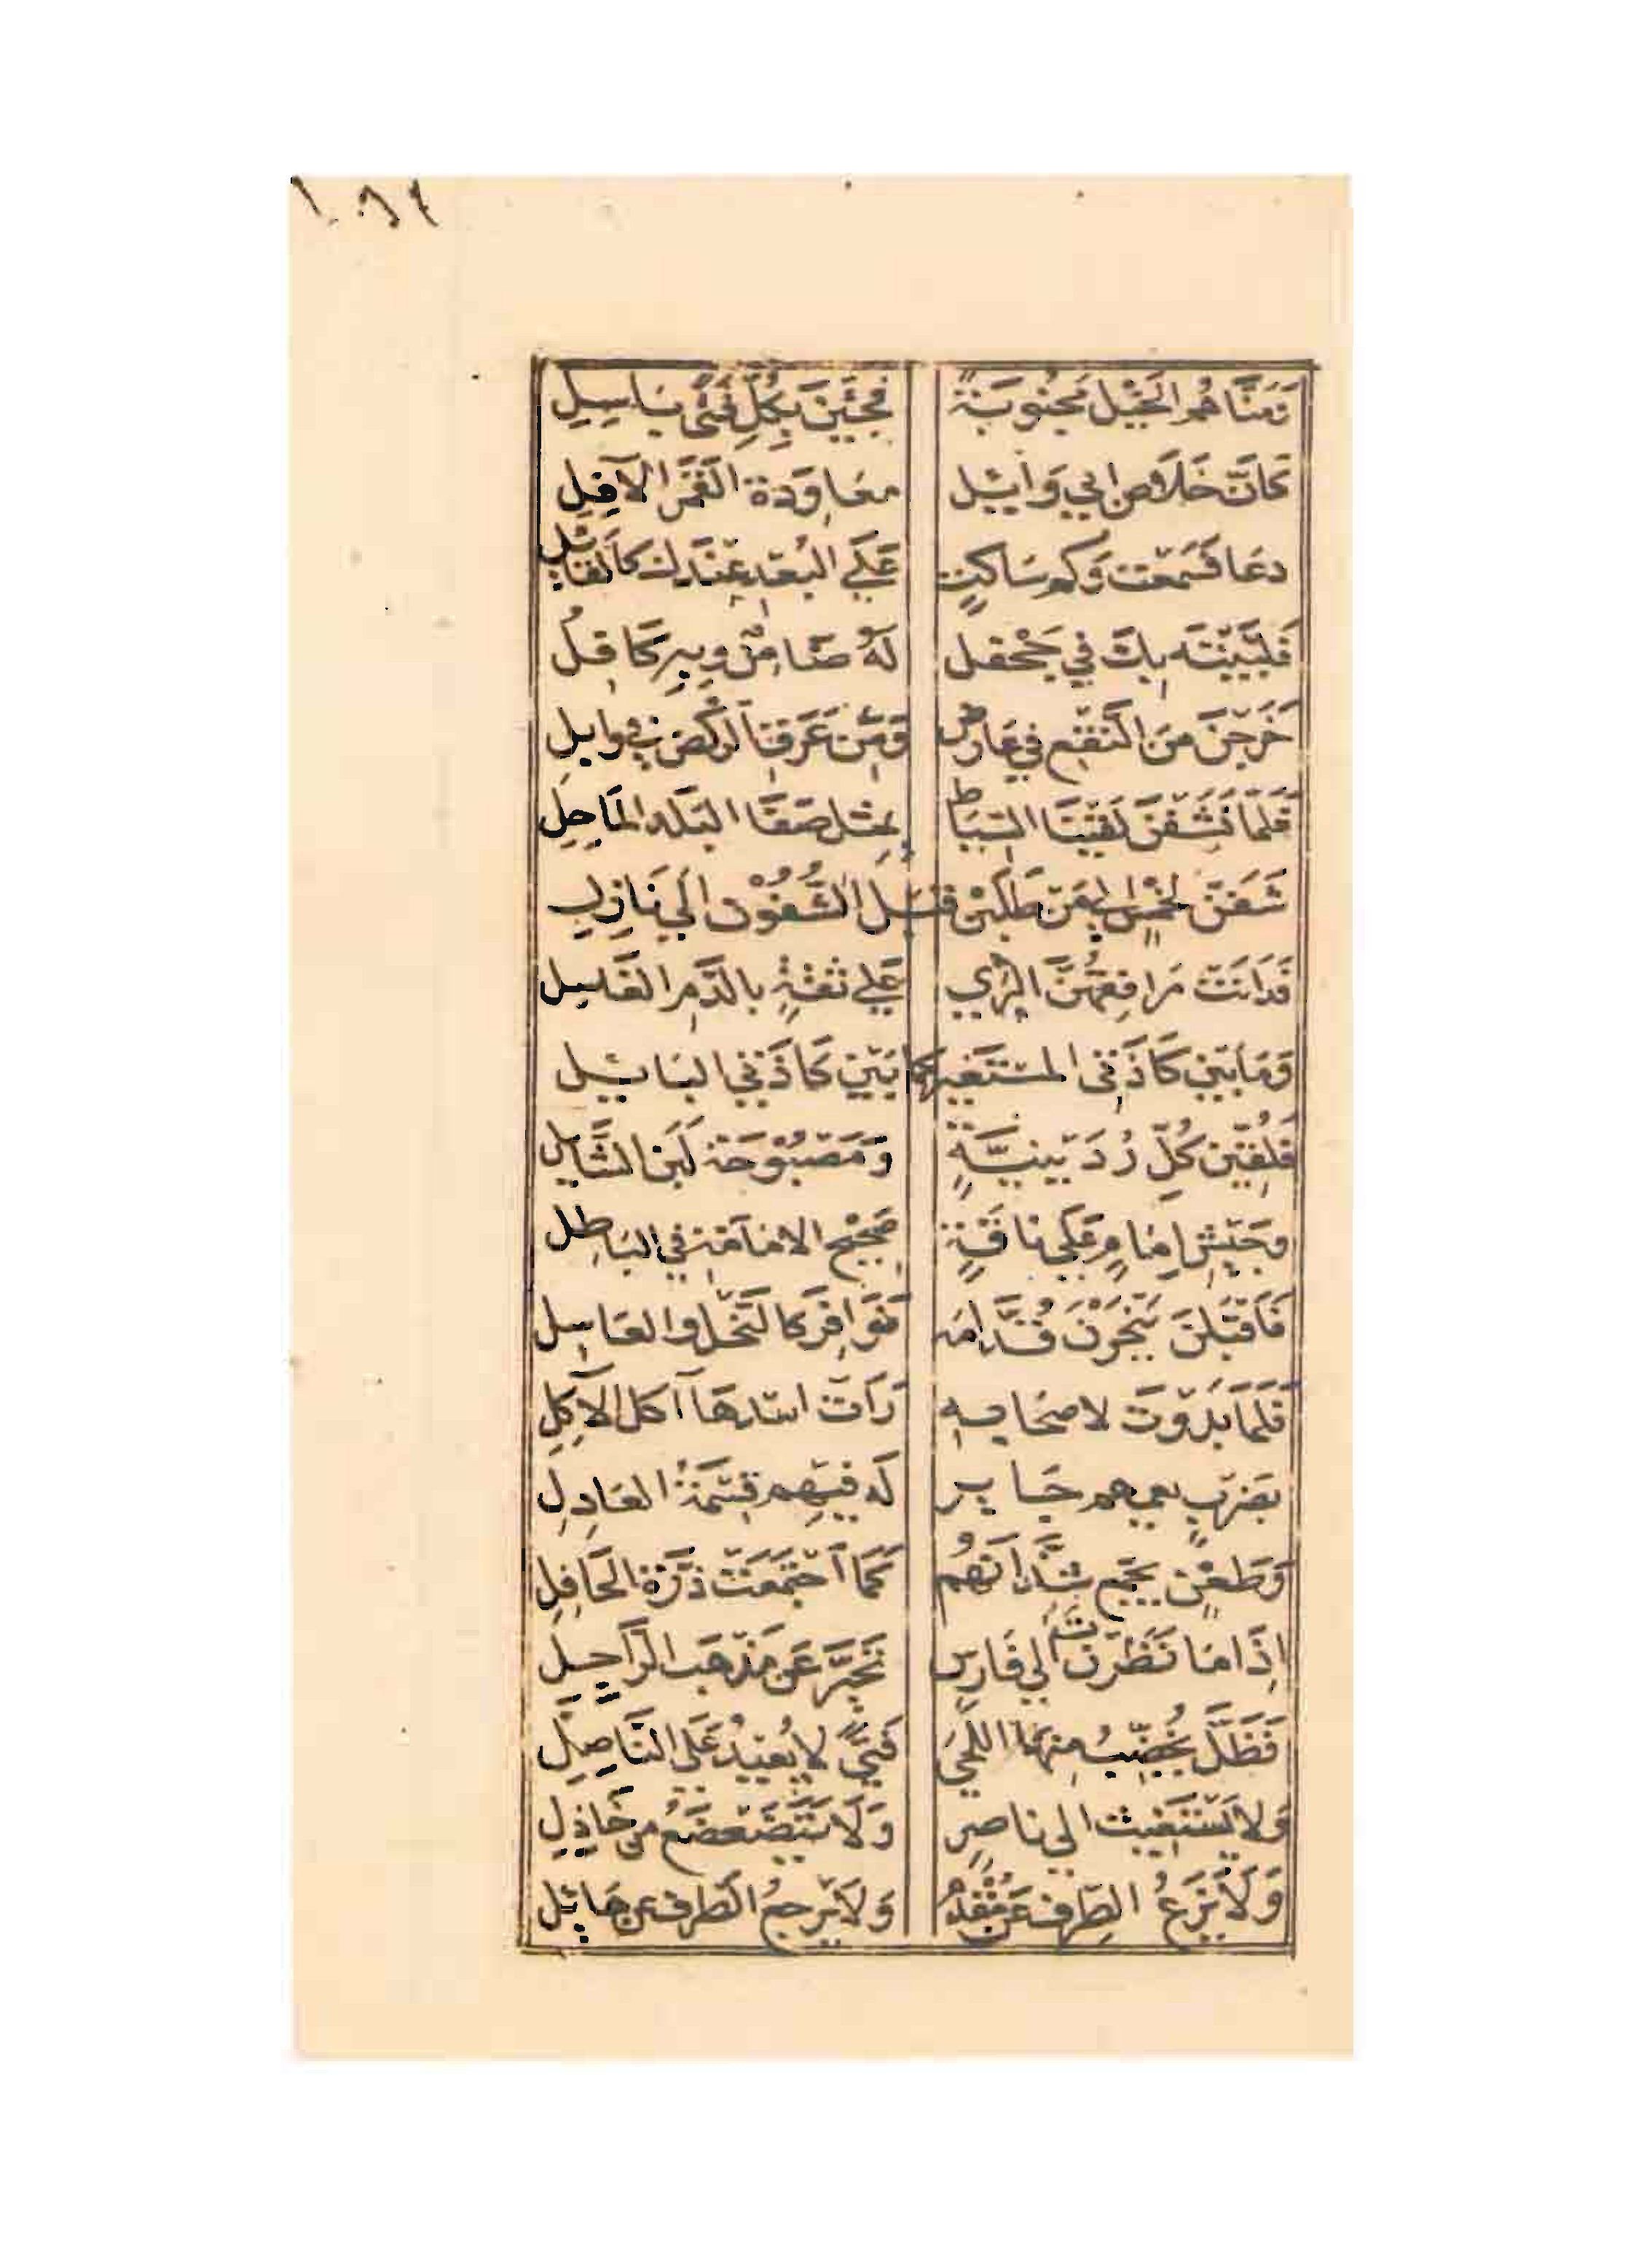 ١٠٨٤
وَمَنَّاهُم الخَيْل مَجْنُوبَةً فجَئْنَ بِكُلِّ فَتًى بَاسِلِ
كَانَّ خَلَاصَ ابي وَائِل معَاوَدة القَمَر الآفِلِ
دعَا فَسَمعْت وَكم سَاكتٍ عَلَى البُعْد عِنْدك كالقَائِل
فَلَبَّيْتَه بِكَ في جَحْفل لَهُ ضَامِنٌ وبِهِ كَافِلُ
خَرَجْنَ مِنَ النَّقْع في عَارضٍ وَمِنْ عَرَقِ الرَّكْض في وابِلِ
فَلَمّا نَشَفْنَ لَقِيْنَ السّيَاط بِمثل صَفَا البَلَد المَاحِلِ
شَفَنَّ لخَمْسٍ الى مَنْ طَلَبْن قبَيْلَ الشُّفُوْن الَى نَازِلِ
فَدَانَتْ مَرَافِقُهُنَّ الثرَى عَلى ثقَةٍ بالدَّمِ الغَاسِل
وَمَا بَيْن كَاذَتي المستَغير كما بَيْن كَاذَتي البَائِل
فَلُقِّيْن كُلّ رُدَيْنِيَّةٍ وَمَصْبُوْحَة لَبَن الشَّائِل
وجَيْشِ اِمَامٍ عَلَى نَاقَةٍ صَحِيْح الامَامَة في البَاطِل
فَاَقْبَلْنَ يَنْحَزْنَ قُدَّامَه نَوَافِرَ كالنَّحْل والعَاسِل
فَلَمّا بَدَوْتَ لاصحَابِه رَاَتْ اسْدهَا آكل الآكِلِ
بضَرْبٍ يعمهم جَايِر لَه فيْهِم قِسْمَةُ العَادِلِ
وَطَعْنٍ يجَمع شذَّانَهُم كَمَا اَجْتَمَعَتْ دَرَّة الحَافِلِ
اِذَا مَا نَظَرْت الى فَارِس تحَيّر عَن مَذْهَب الرَّاجِلِ
فَظَلَّ يُخَضِّبُ مِنهَا اللحَى فَتًى لا يُعِيْدُ عَلَى النَّاصِلِ
وَلا يَسْتَغِيْث الى ناصِرٍ وَلَا يَتَضَعْضَعُ من خَاذِلِ
وَلَا يَزَعُ الطِّرْف عَن مُقْدَمٍ وَلَا يَرْجعُ الطَّرْف عن هَائِل